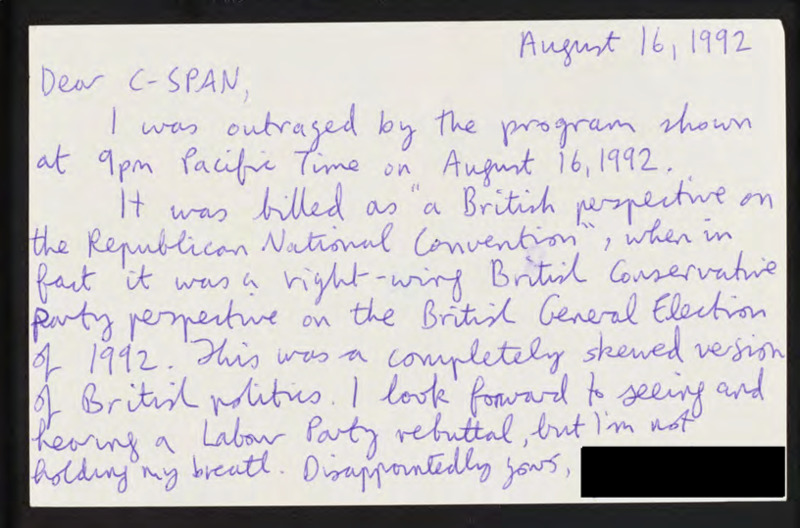 August 16, 1992
Dear C-SPAN,
I was outraged by the program shown
at 9pm Pacific Time on August 16, 1992.
It was billed as "a British perspective on
the Republican National Convention", when in
fact it was a right-wing British Conservative
Party perspective on the British General Election
of 1992. This was a completely skewed version
of British politics. I look forward to seeing and
hearing a Labour Party rebuttal, but I'm not
holding my breath. Disappointedly yours,